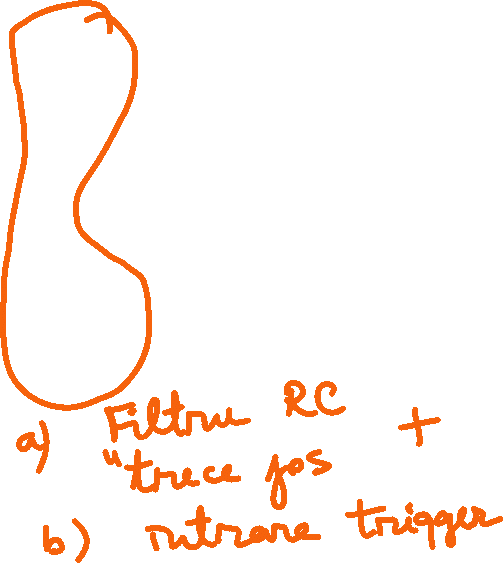 a) Filtru RC +
"trece jos
b) intrare trigger